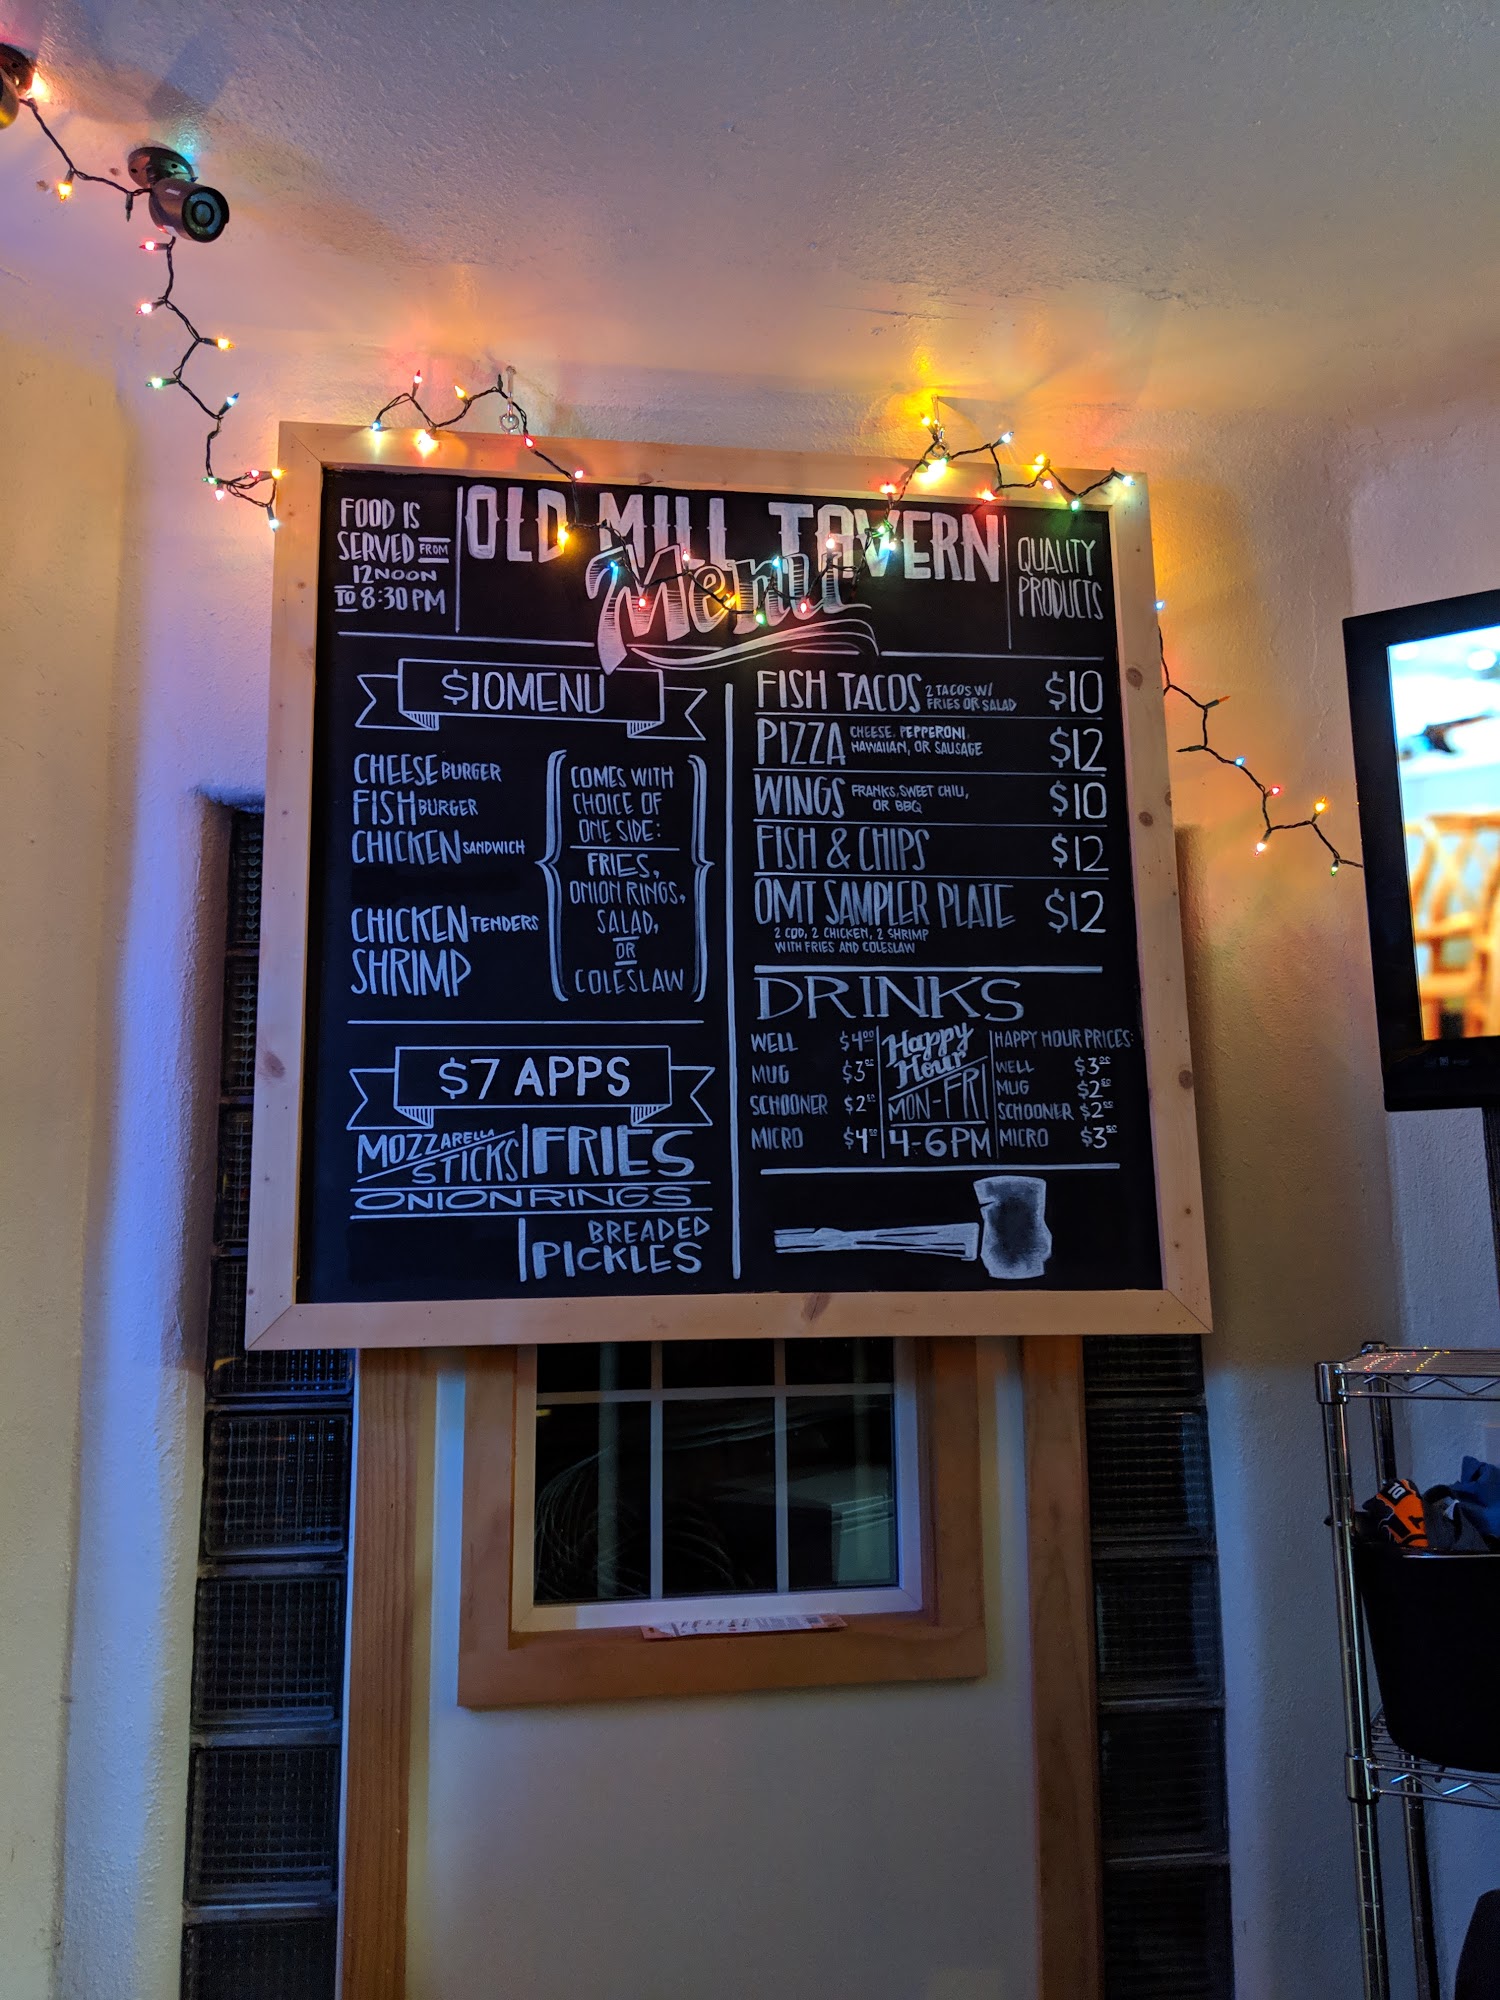 FOOD IS
SERVED FROM
12NOON
TO 8:30 PM
OLD MILL TAVERN
Menu
QUALITY
PRODUCTS
$10 MENU
CHEESE BURGER
FISH BURGER
CHICKEN SANDWICH
CHICKEN TENDERS
SHRIMP
COMES WITH
CHOICE OF
ONE SIDE:
FRIES,
ONION RINGS,
SALAD,
OR
COLESLAW
$7 APPS
MOZZARELLA
STICKS
FRIES
ONION RINGS
BREADED
PICKLES
FISH TACOS 2 TACOS W/
FRIES OR SALAD
$10
PIZZA CHEESE, PEPPERONI,
HAWAIIAN, OR SAUSAGE
$12
WINGS FRANKS, SWEET CHILI,
OR BBQ
$10
FISH & CHIPS $12
OMT SAMPLER PLATE $12
2 COD, 2 CHICKEN, 2 SHRIMP
WITH FRIES AND COLESLAW
DRINKS
WELL $4
MUG $3
SCHOONER $2
MICRO $4
Happy
Hour
MON-FRI
4-6PM
HAPPY HOUR PRICES:
WELL $3
MUG $2
SCHOONER $2
MICRO $3